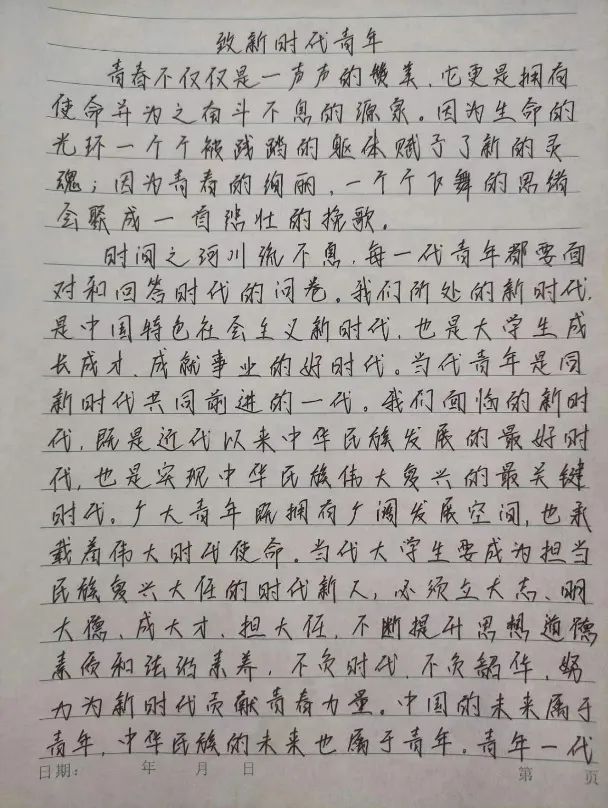 致新时代青年
青春不仅仅是一声声的赞美，它更是拥有
使命并为之奋斗不息的源泉。因为生命的
光环一个个被践踏的躯体赋予了新的灵
魂；因为青春的绚丽，一个个飞舞的思绪
会聚成一首悲壮的挽歌。
时间之河川流不息，每一代青年都要面
对和回答时代的问卷。我们所处的新时代，
是中国特色社会主义新时代，也是大学生成
长成才、成就事业的好时代。当代青年是同
新时代共同前进的一代。我们面临的新时
代，既是近代以来中华民族发展的最好时
代，也是实现中华民族伟大复兴的最关键
时代。广大青年既拥有广阔发展空间，也承
载着伟大时代使命。当代大学生要成为担当
民族复兴大任的时代新人，必须立大志、明
大德、成大才、担大任，不断提升思想道德
素质和法治素养，不负时代，不负韶华，努
力为新时代贡献青春力量。中国的未来属于
青年，中华民族的未来也属于青年。青年一代
日期： 年 月 日 第 页